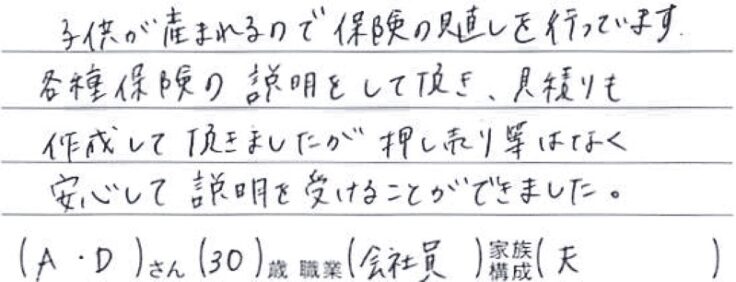 子供が産まれるので保険の見直しを行っています.
各種保険の説明をして頂き、見積りも
作成して頂きましたが押し売り等はなく
安心して説明を受けることができました。
(A・D)さん(30)歳 職業(会社員)家族構成(夫)